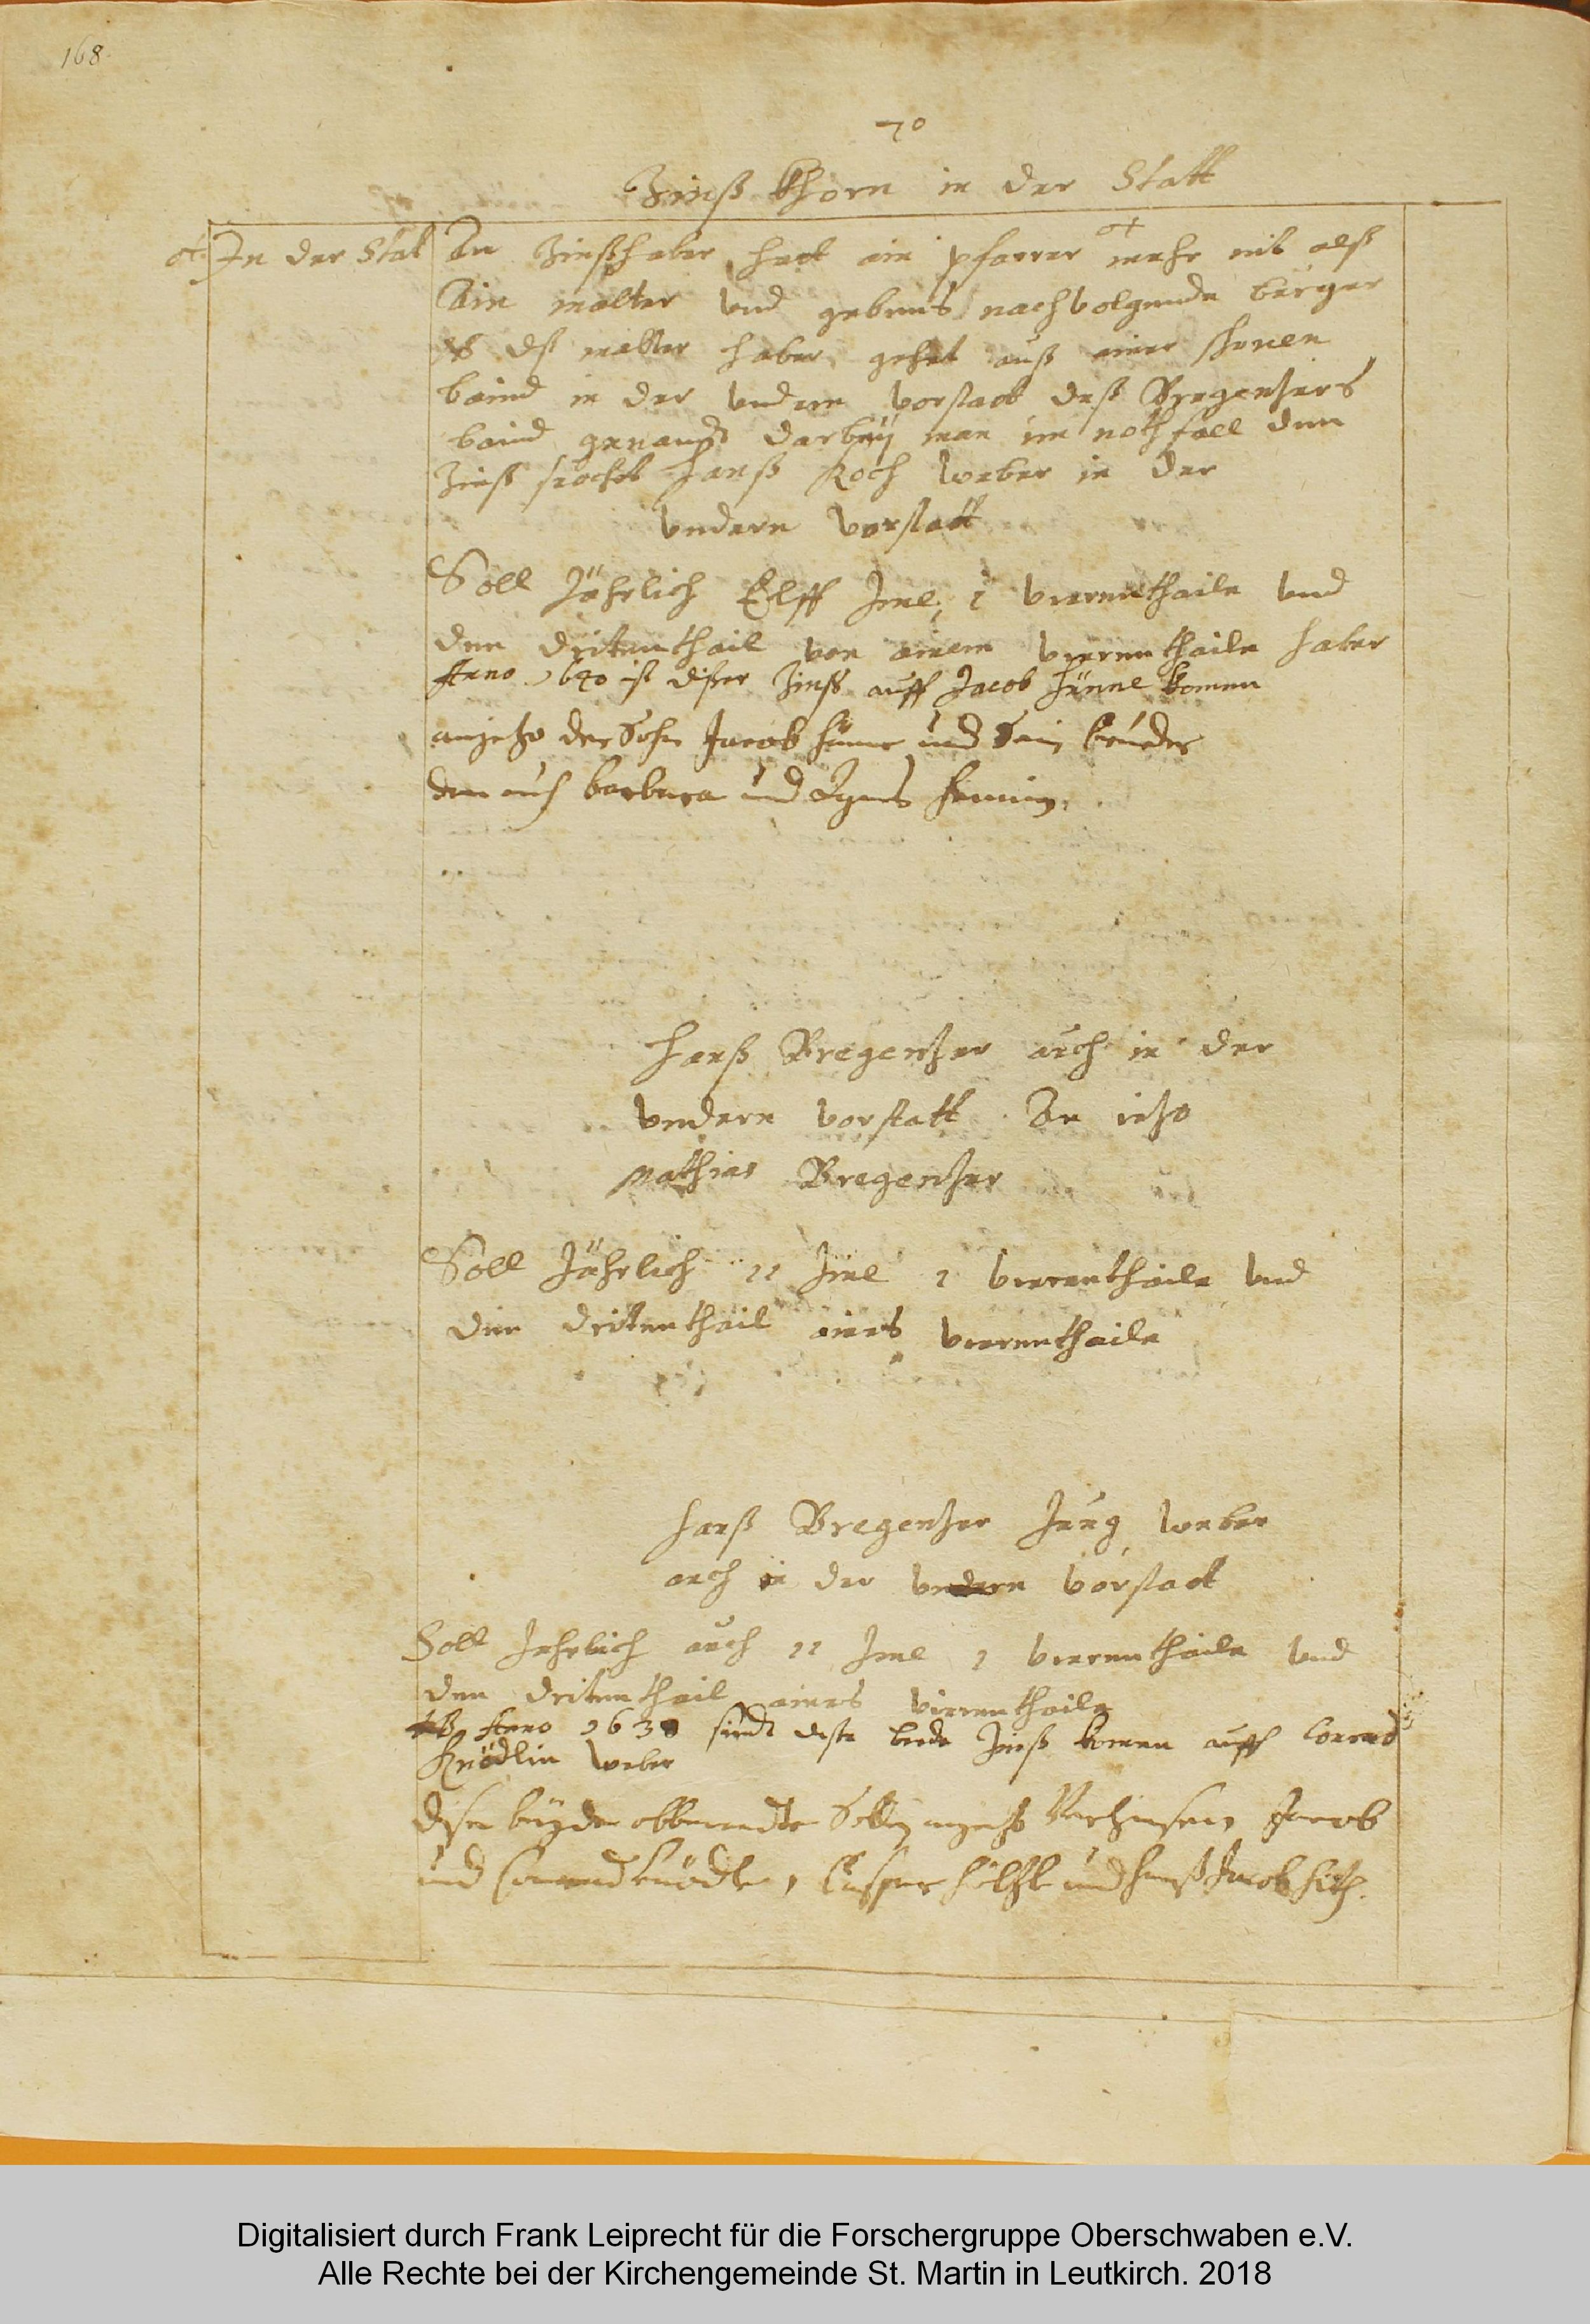 168.
70
Zinß khorn in der Statt
In der Stat
An Zinßhaber hadt ain pfarrer mehr nit alß
Ain malter vnd gebens nachvolgende berger
NB dß malter haber gehet auß einer
baind in der vndern vorstadt deß Bregenzers
baind genandt darbeÿ man im noth fall den
Zinß Hanß Koch weber in der
vndern vorstatt
Soll Jährlich Elff Jmel, 1 vierenthaile vnd
den dritenthail von ainem vierenthaile haber
Anno 1640 ist diser Zinß auff Jacob Hünne komen
anjezo der Sohn Jacob Hünne und Sein brueder
den auch barbara und Agnes
Hanß Bregenzer auch in der
vndern vorstatt An iezo
Mathias Bregenzer
Soll Jährlich 11 Jmel 1 vierenthaile vnd
den dritenthail aines vierenthaile
Hanß Bregenzer Jung weber
auch in der vndern vorstadt
Soll Jehrlich auch 11 Jmel 1 vierenthaile vnd
den dritenthail aines vierenthaile
NB Anno 1638 sindt dise bede Zinß komen auff Conrad
Knödlin weber
dise beyde obbenendte Sollen anjezo Verzinsen Jacob
und Conrad Knödle, Casper und Hanß Jacob
Digitalisiert durch Frank Leiprecht für die Forschergruppe Oberschwaben e.V.
Alle Rechte bei der Kirchengemeinde St. Martin in Leutkirch. 2018